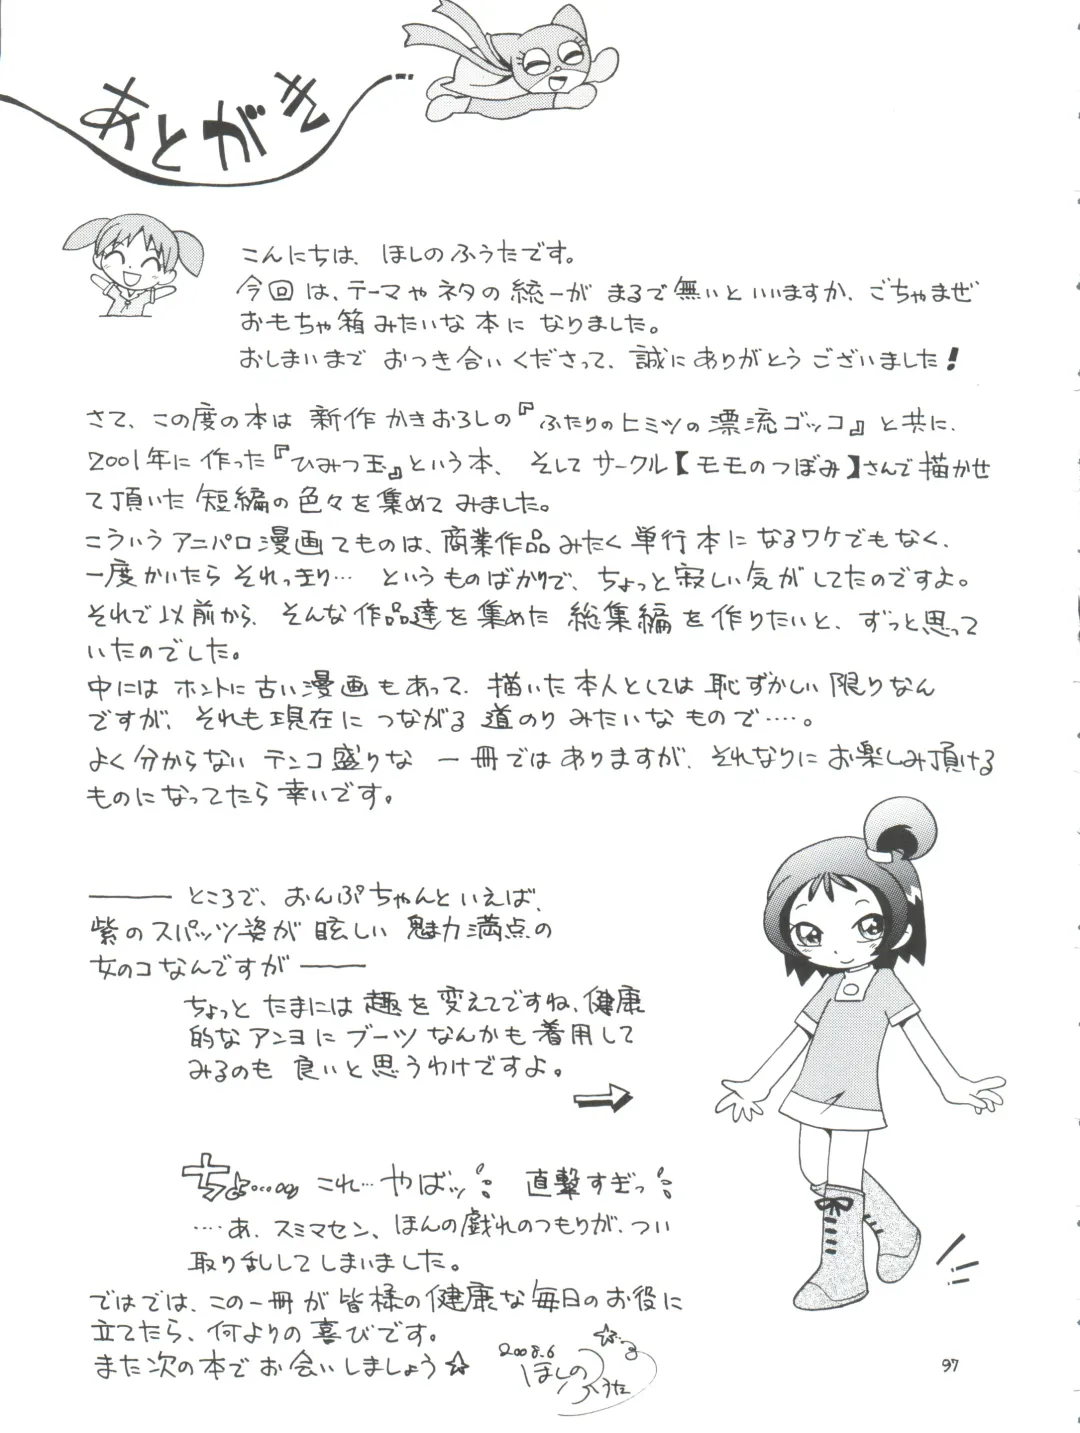 あとがき
こんにちは、ほしのふうたです。
今回は、テーマやネタの統一がまるで無いといいますか、ごちゃまぜ
おもちゃ箱みたいな本になりました。
おしまいまでおつき合いくださって、誠にありがとうございました!
さて、この度の本は新作かきおろしの『ふたりのヒミツの漂流ゴッコ』と共に、
2001年に作った『ひみつ玉』という本、そしてサークル【モモのつぼみ】さんで描かせ
て頂いた短編の色々を集めてみました。
こういうアニパロ漫画てものは、商業作品みたく単行本になるワケでもなく、
一度かいたらそれっきり… というものばかりで、ちょっと寂しい気がしてたのですよ。
それで以前から、そんな作品達を集めた総集編を作りたいと、ずっと思って
いたのでした。
中にはホントに古い漫画もあって、描いた本人としては恥ずかしい限りなん
ですが、それも現在につながる道のりみたいなもので‥‥。
よく分からないテンコ盛りな一冊ではありますが、それなりにお楽しみ頂ける
ものになってたら幸いです。
――― ところで、おんぷちゃんといえば、
紫のスパッツ姿が眩しい魅力満点の
女のコなんですが ――
ちょっとたまには趣を変えてですね、健康
的なアンヨにブーツなんかも着用して
みるのも良いと思うわけですよ。
→
ちょ… これ…やばッ 直撃すぎっ
‥‥あ、スミマセン、ほんの戯れのつもりが、つい
取り乱してしまいました。
ではでは、この一冊が皆様の健康な毎日のお役に
立てたら、何よりの喜びです。
また次の本でお会いしましょう☆
2008.6
ほしのふうた
97